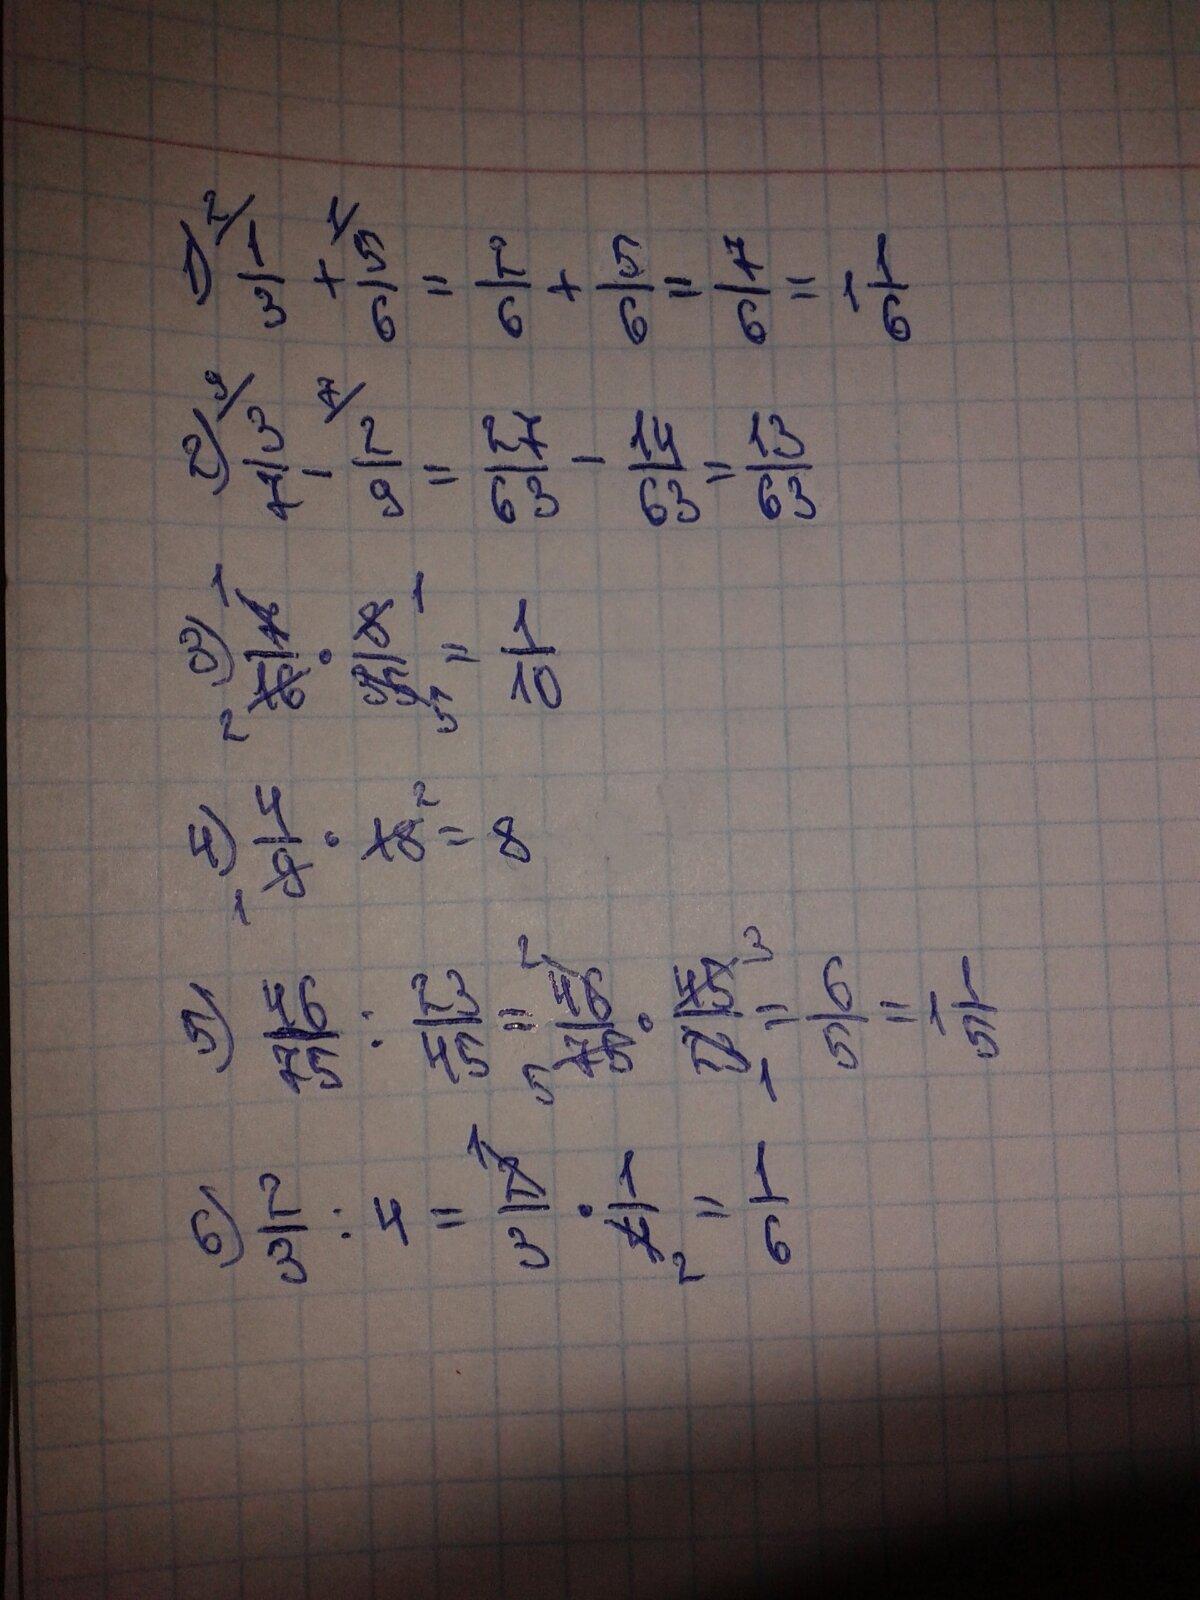 1) 2/ 1/3 + 1/ 5/6 = 2/6 + 5/6 = 7/6 = 1 1/6
2) 9/ 3/7 - 7/ 2/9 = 27/63 - 14/63 = 13/63
3) 1 7/16 2 · 8/35 1 5 = 1/10
4) 4/9 1 · 18 2 = 8
5) 46/75 : 23/45 = 2 46/75 5 · 45/23 3 1 = 6/5 = 1 1/5
6) 2/3 : 4 = 1 2/3 · 1/4 2 = 1/6